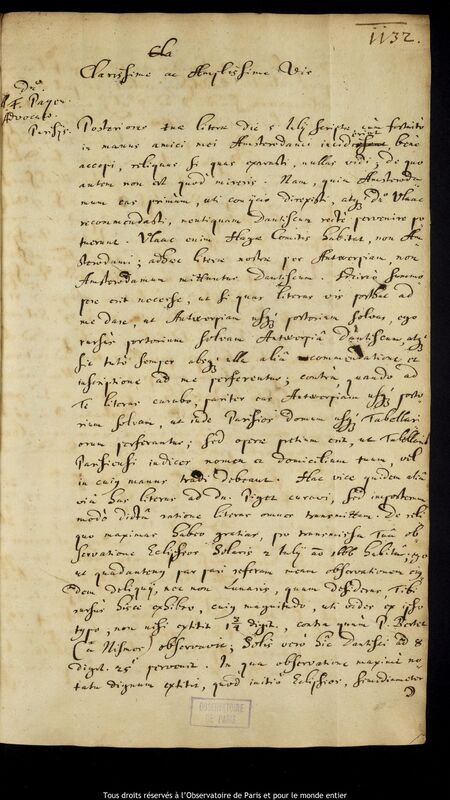 1132.
Cla
Clarissime ac Amplissime Vir
Dno.
Æ. Payen
Advocato
Parisijs.
Posteriores tuæ literæ die 5 Julij scriptæ cum fortuito
in manus amici mei Amsterodami inciderint bene
accepi, reliquas si quas exarasti, nullas vidi; de quo
autem non est quod mireris. Nam, quia Amsteroda
mum eas primum, uti conijcio direxisti, atq; Dno Vlaac
recommendasti, neutiquam Dantiscum rectè pervenire po
tuerunt. Vlaac enim Hagæ Comitis habitat, non Am
sterodami; adhæc literæ nostræ per Antverpiam, non
Amsterodamum mittuntur Dantiscum. Proinde summo
pere erit necesse, ut si quas literas vis posthac ad
me dare, ut Antwerpiam usq; portorium solvas, ego
rursus portorium solvam Antwerpiâ Dantiscum, atq;
sic tutò semper absq; ulla aliâ recommendatione et
inscriptione ad me perferentur; contrà, quando ad
Te literas curabo, pariter eas Antwerpiam usq; porto
rium solvam, ut inde Parisios domum usq; Tabellari
orum perferantur; sed operæ pretium erit, ut Tabellario
Parisiensi indices nomen et domicilium tuum, vel
in cuiq manus tradi debeant. Hac vice quidem aliâ
viâ has literas ad Dn. Piget curavi, sed imposterum
modò dictâ ratione literas omnes transmittam. De reli
quo maximas habeo gratias, pro transmissa Tua ob
servatione Eclipseos Solaris 2 Julij ao 1666 habitâ; ego
ut quadantenus par pari referam meam observationem eius
dem deliquij, nec non Lunaris, quam desideras Tibi
rursus hisce exhibeo, cuiq magnitudo, uti vides ex ipso
typo, non nisi extitit 1/2 digit., contra quam P. Bertet
(ut Nismes) observavit; Solis verò hîc Dantisci ad 8
digit. 25' pervenit. In qua observatione maximè no
tatu dignum extitit, quod initio Eclipseos, semidiameter
OBSERVATOIRE
DE PARIS
Tous droits réservés à l'Observatoire de Paris et pour le monde entier